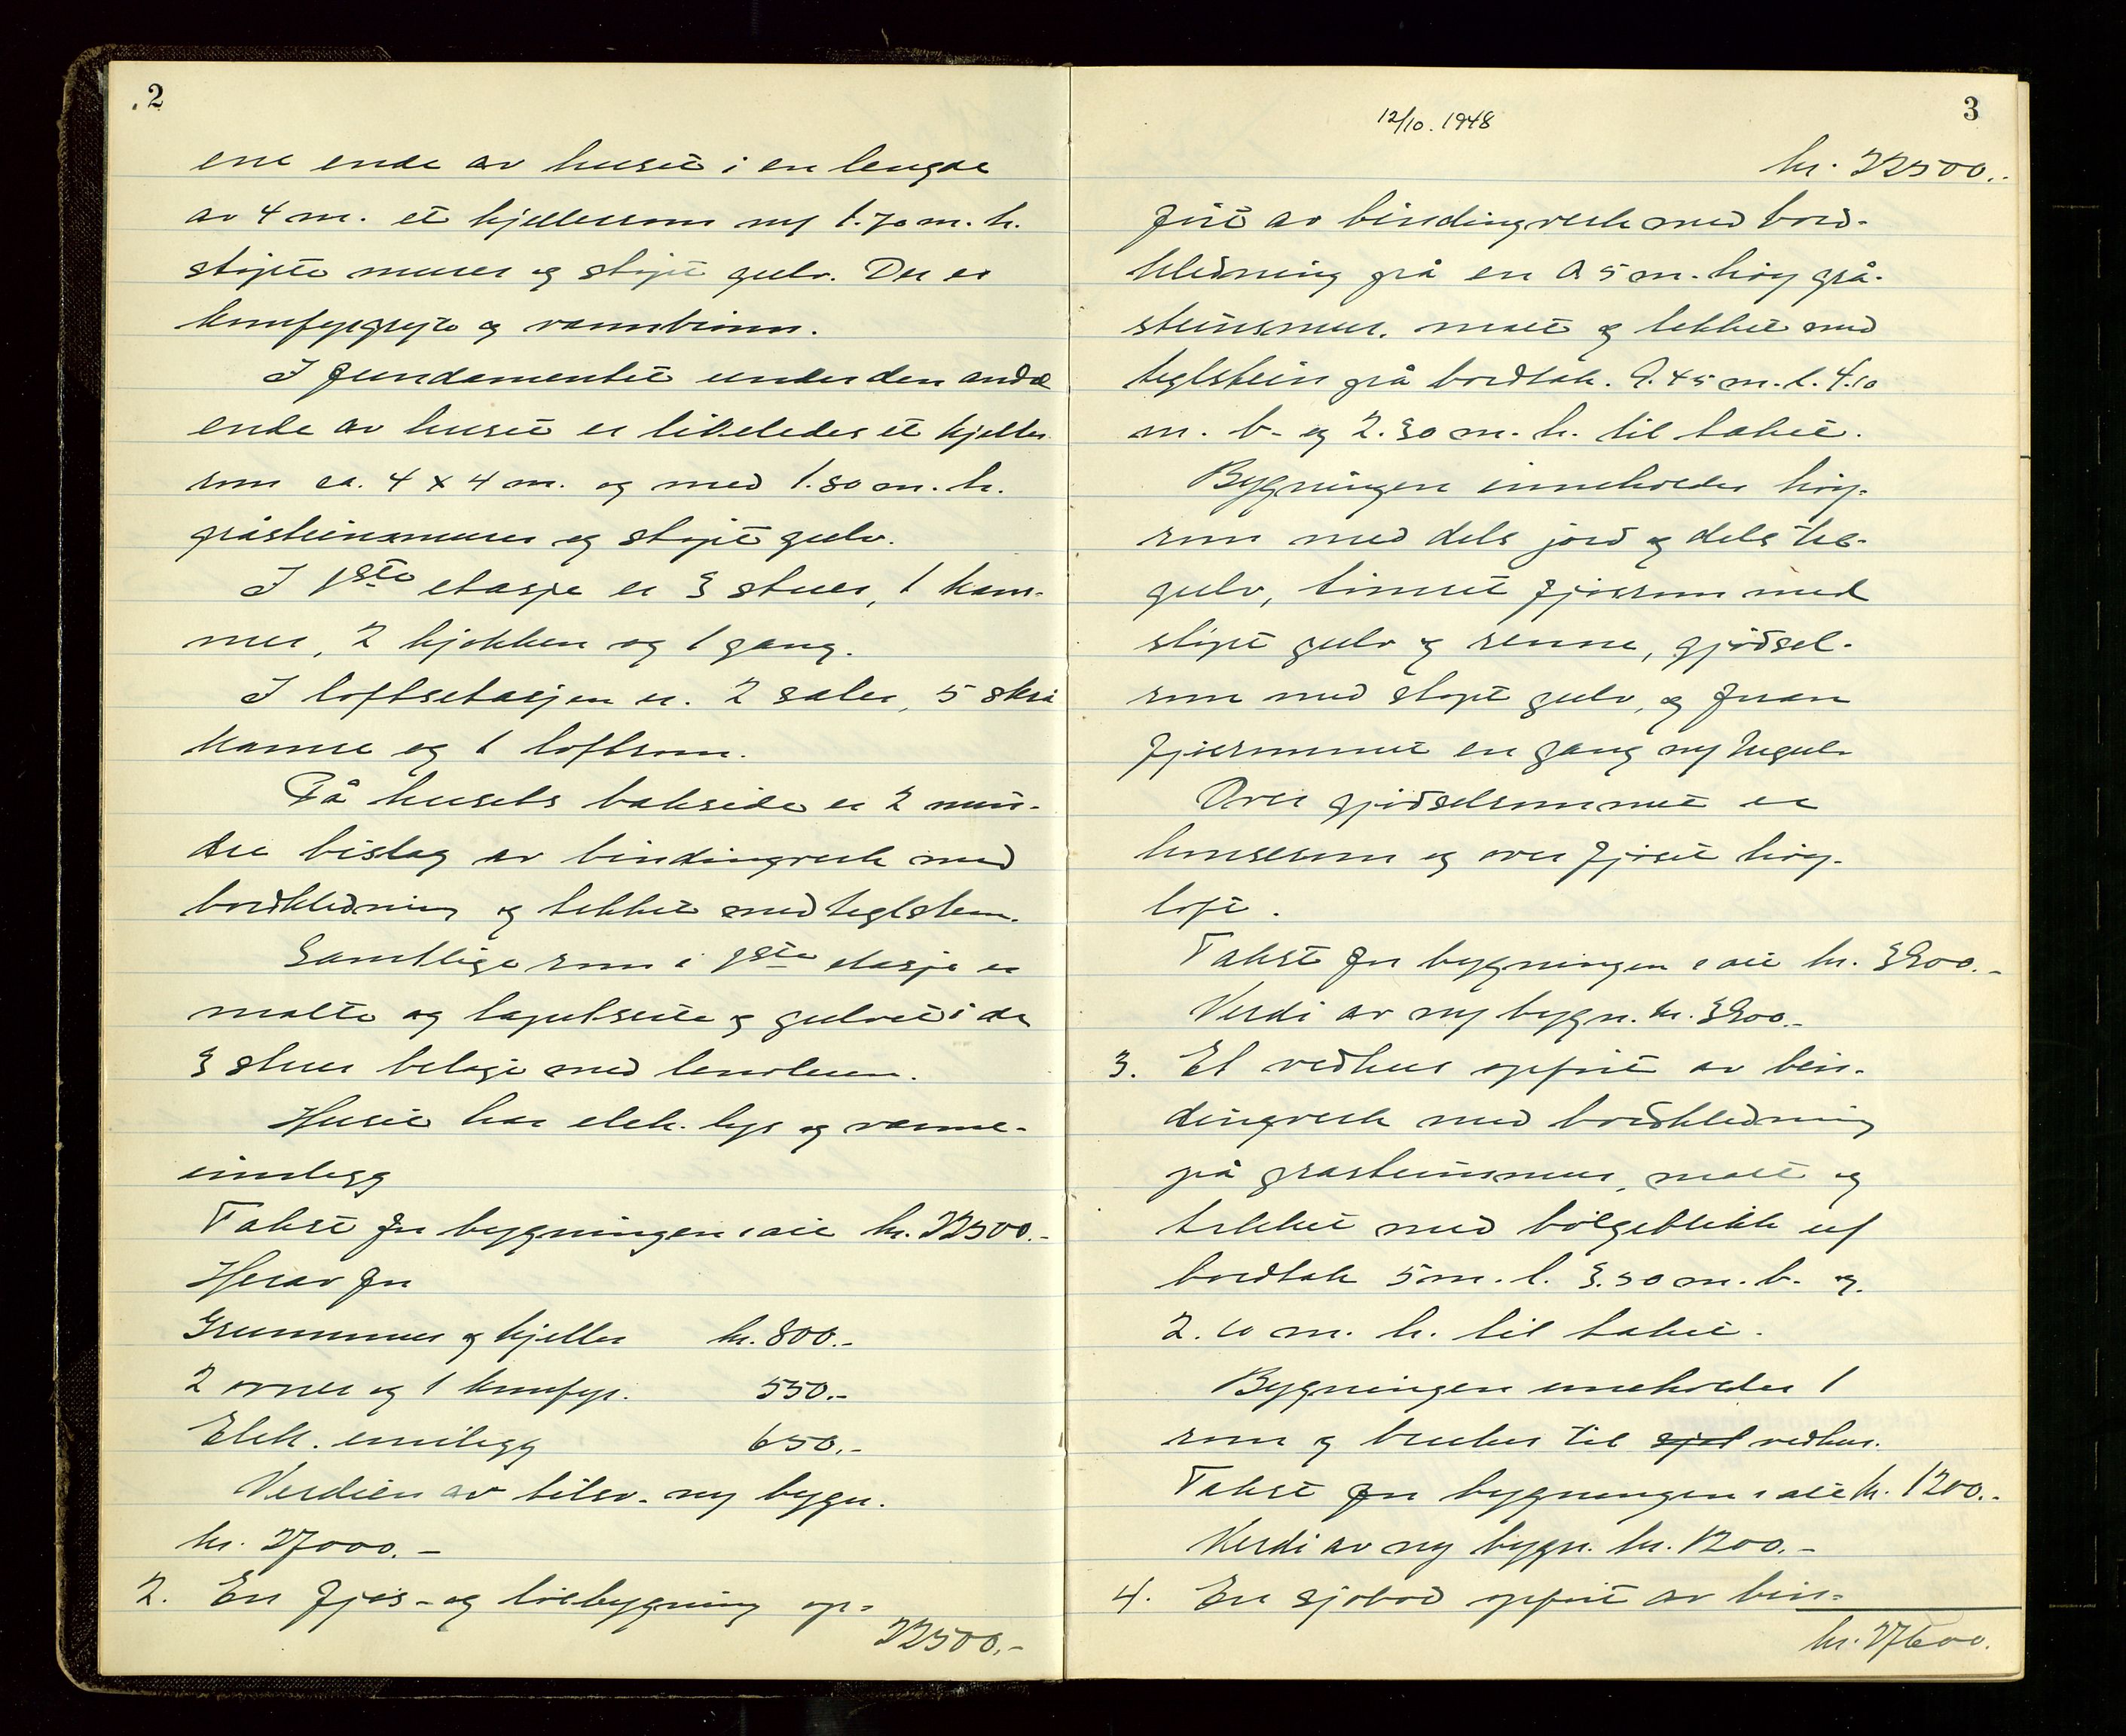 2
ene ende av huset i en lengde
av 4 m. et kjellerrom m/ 1.70 m. h.
støpte murer og støpt gulv. Der er
komfyrgryte og vannbrønn.
I fundamentet under den andre
ende av huset er likeledes et kjeller
rom ca. 4 x 4 m. og med 1.80 m. h.
gråsteinsmurer og støpt gulv.
I 1ste etasje er 3 stuer, 1 kam-
mer, 2 kjøkken og 1 gang.
I loftsetasjen er. 2 saler, 5 skrå
kamre og 1 loftsrom.
På husets bakside er 2 min-
dre bislag av bindingverk med
bordkledning og tekket med teglstein.
Samtlige rom i 1ste etasje er
malte og tapetserte og gulvet i de
3 stuer belagt med linoleum.
Huset har elek. lys og varme-
innlegg
Takst for bygningen i alt kr. 22500.-
Herav for
Grunnmur og kjeller kr. 800.-
2 ovner og 1 komfyr. 550.-
Elek. innlegg 650.-
Verdien av tilsv. ny bygn.
kr. 27000.-
2. En fjøs- og løebygning op-
22500.-
12/10. 1948
3
kr. 22500.-
ført av bindingverk med bord-
kledning på en 0.5 m. høy grå-
steinsmur. malt og tekket med
teglstein på bordtak. 9.45 m. l. 4.10
m. b. og 2.30 m. h. til taket.
Bygningen inneholder høy-
rom med dels jord og dels tre-
gulv, timret fjøsrom med
støpt gulv og renne, gjødsel-
rom med støpt gulv, og foran
fjøsrommet en gang m/ tregulv
Over gjødselrommet er
hønserom og over fjøset høy-
loft.
Takst for bygningen i alt kr. 3900.-
Verdi av ny bygn. kr. 3900.-
3. Et vedhus oppført av bin-
dingverk med bordkledning
på gråsteinsmur, malt og
tekket med bølgeblikk u/
bordtak 5 m. l. 3.50 m. b. og
2.10 m. h. til taket.
Bygningen inneholder 1
rom og brukes til sjøl vedhus.
Takst for bygningen i alt kr. 1200.-
Verdi av ny bygn. kr. 1200.-
4. En sjøbod oppført av bin-
kr. 27600.